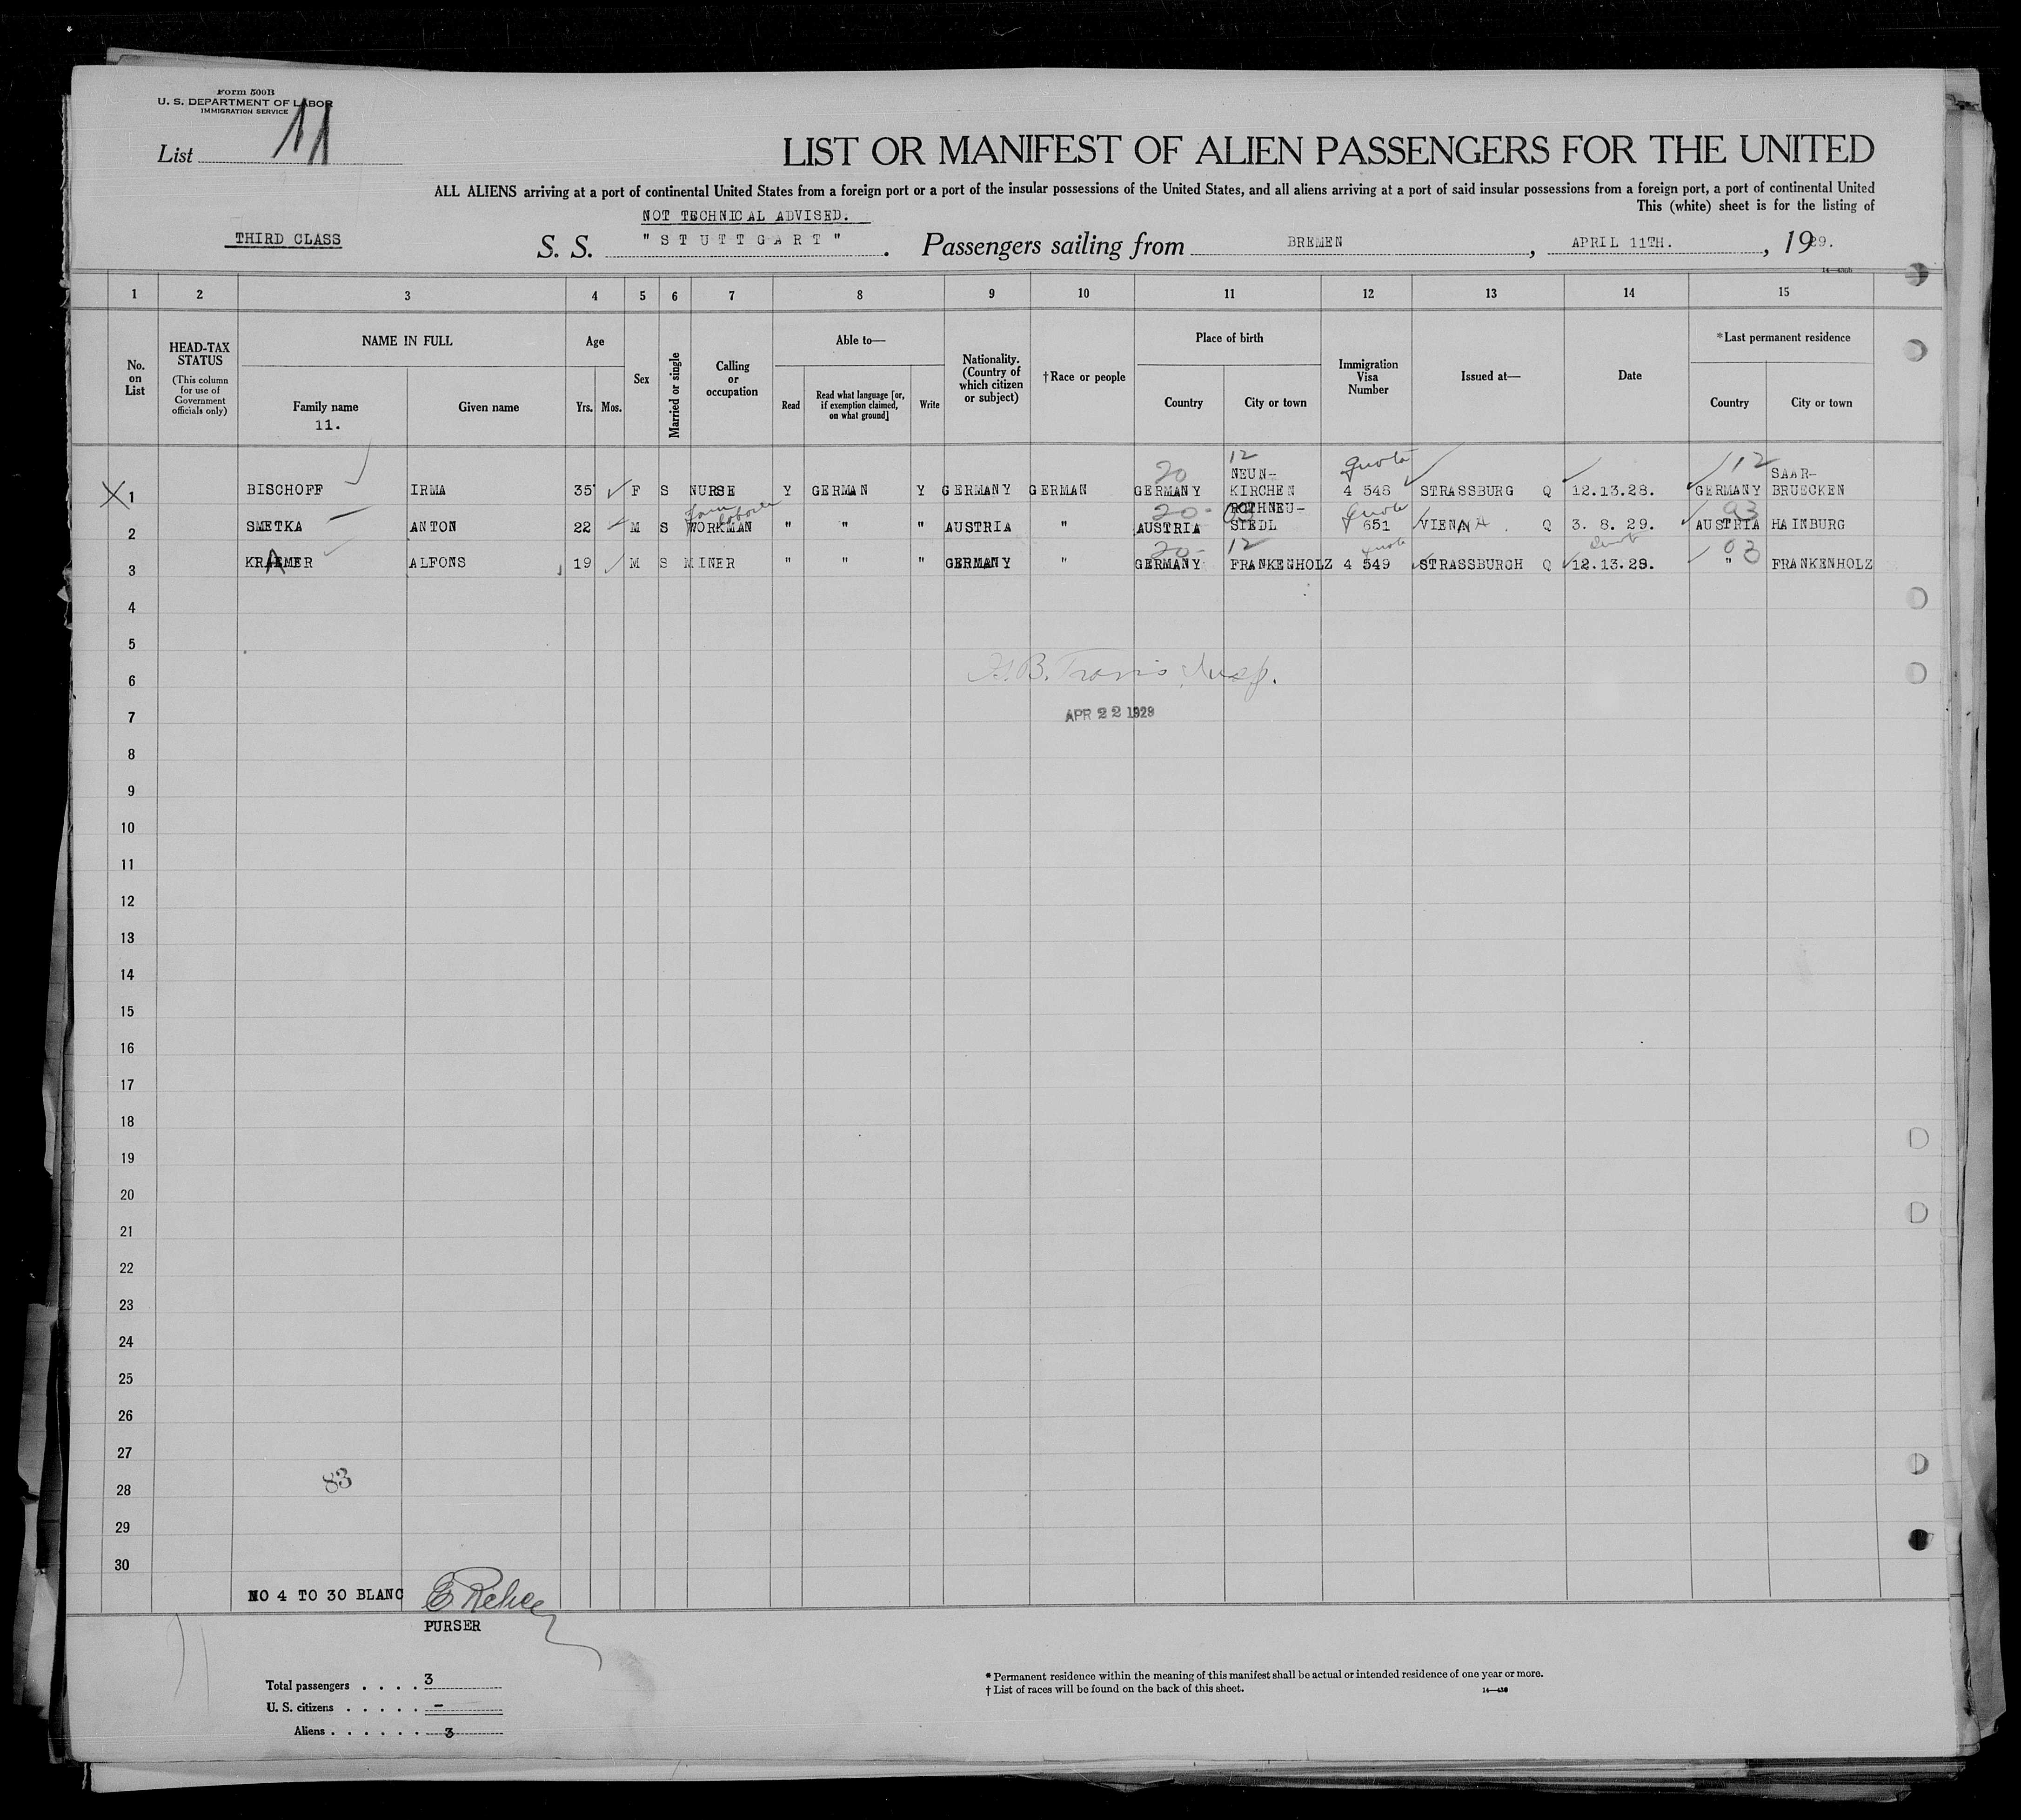 Form 500B
U. S. DEPARTMENT OF LABOR
IMMIGRATION SERVICE
List 11
LIST OR MANIFEST OF ALIEN PASSENGERS FOR THE UNITED
ALL ALIENS arriving at a port of continental United States from a foreign port or a port of the insular possessions of the United States, and all aliens arriving at a port of said insular possessions from a foreign port, a port of continental United
This (white) sheet is for the listing of
NOT TECHNICAL ADVISED.
THIRD CLASS S. S. "STUTTGART". Passengers sailing from BREMEN, APRIL 11TH., 1929.
1 2 3 4 5 6 7 8 9 10 11 12 13 14 15
No. on List
HEAD-TAX STATUS (This column for use of Government officials only)
NAME IN FULL
Family name
11.
Given name
Age
Yrs. Mos.
Sex
Married or single
Calling or occupation
Able to—
Read
Read what language [or, if exemption claimed, on what ground]
Write
Nationality. (Country of which citizen or subject)
†Race or people
Place of birth
Country
City or town
Immigration Visa Number
Issued at—
Date
*Last permanent residence
Country
City or town
20 12 quota 12
X 1 BISCHOFF IRMA 35 F S NURSE Y GERMAN Y GERMANY GERMAN GERMANY NEUN-KIRCHEN 4 548 STRASSBURG Q 12.13.28. GERMANY SAAR-BRUECKEN
farm laborer 20- 03 quota 03
2 SMETKA ANTON 22 M S WORKMAN " " " AUSTRIA " AUSTRIA ROTHNEU-SIEDL 651 VIENNA Q 3. 8. 29. AUSTRIA HAINBURG
20- 12 quota 03
3 KRAEMER ALFONS 19 M S MINER " " " GERMANY " GERMANY FRANKENHOLZ 4 549 STRASSBURGH Q 12.13.28. " FRANKENHOLZ
4
5
6
H.B. Travis, Insp.
7
APR 22 1929
8
9
10
11
12
13
14
15
16
17
18
19
20
21
22
23
24
25
26
27
83
28
29
30
NO 4 TO 30 BLANC
PURSER
Total passengers . . . . 3
U. S. citizens . . . . . –
Aliens . . . . . . 3
* Permanent residence within the meaning of this manifest shall be actual or intended residence of one year or more.
† List of races will be found on the back of this sheet.